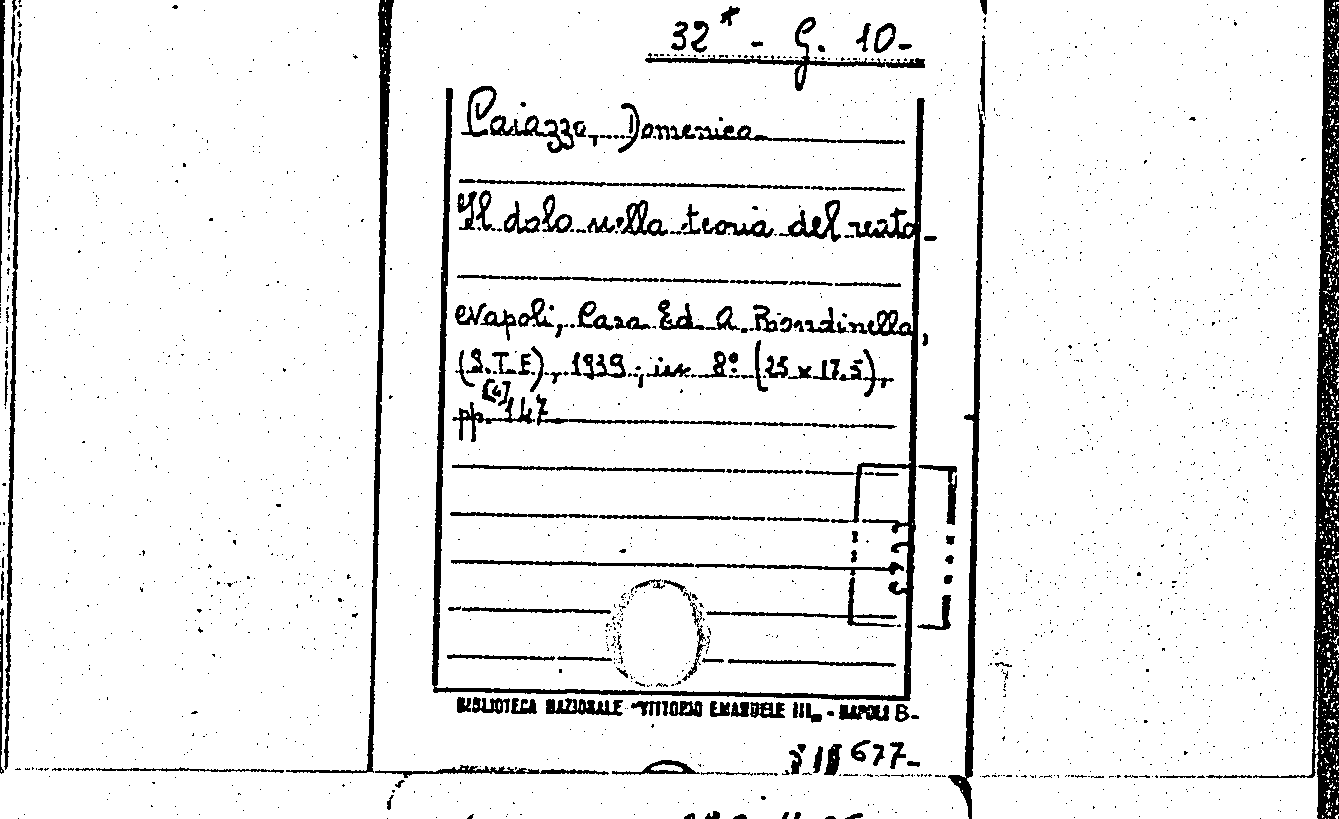 32* - G. 10-
Caiazzo, Domenico-
Il dolo nella teoria del reato-
Napoli, Casa Ed. A. Rondinella,
(S.T.E), 1939; in 8º (25 x 17.5),
pp. [4] 147-
BIBLIOTECA NAZIONALE "VITTORIO EMANUELE III„ - NAPOLI B-
677-